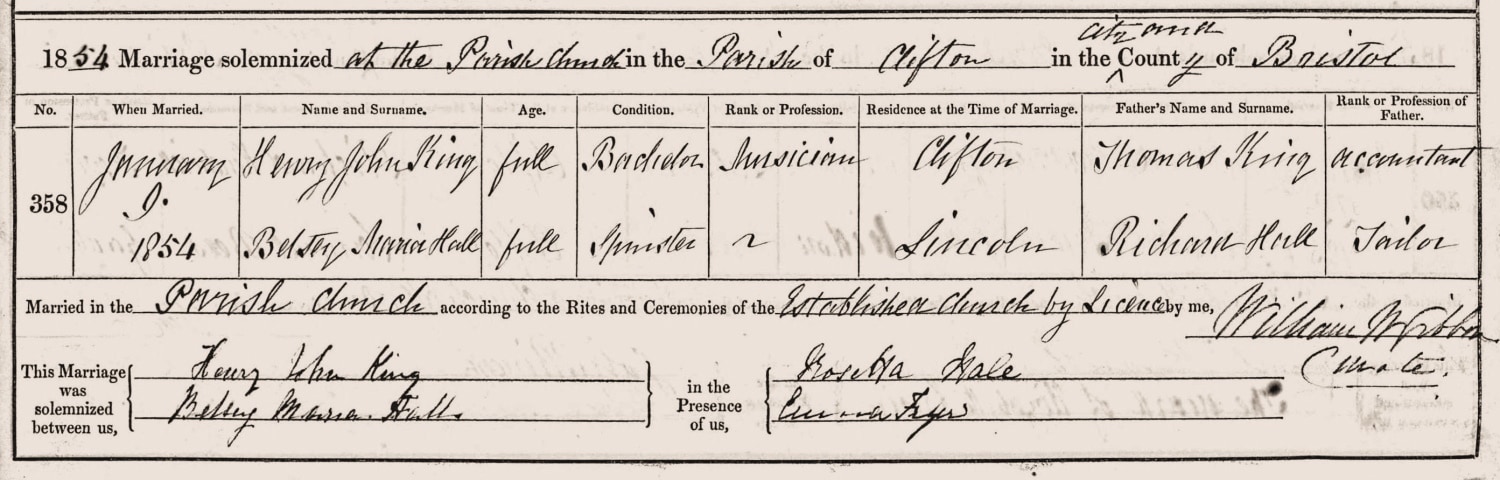 city and
1854 Marriage solemnized at the Parish Church in the Parish of Clifton in the County of Bristol
No. When Married. Name and Surname. Age. Condition. Rank or Profession. Residence at the Time of Marriage. Father's Name and Surname. Rank or Profession of Father.
358 January 9. 1854
Henry John King full Bachelor Musician Clifton Thomas King accountant
Betsey Maria Hall full Spinster Lincoln Richard Hall Tailor
Married in the Parish Church according to the Rites and Ceremonies of the Established Church by Licence by me, William
Curate.
This Marriage was solemnized between us, Henry John King
Betsey Maria Hall
in the Presence of us, Rosetta Hale
Emma Fryer